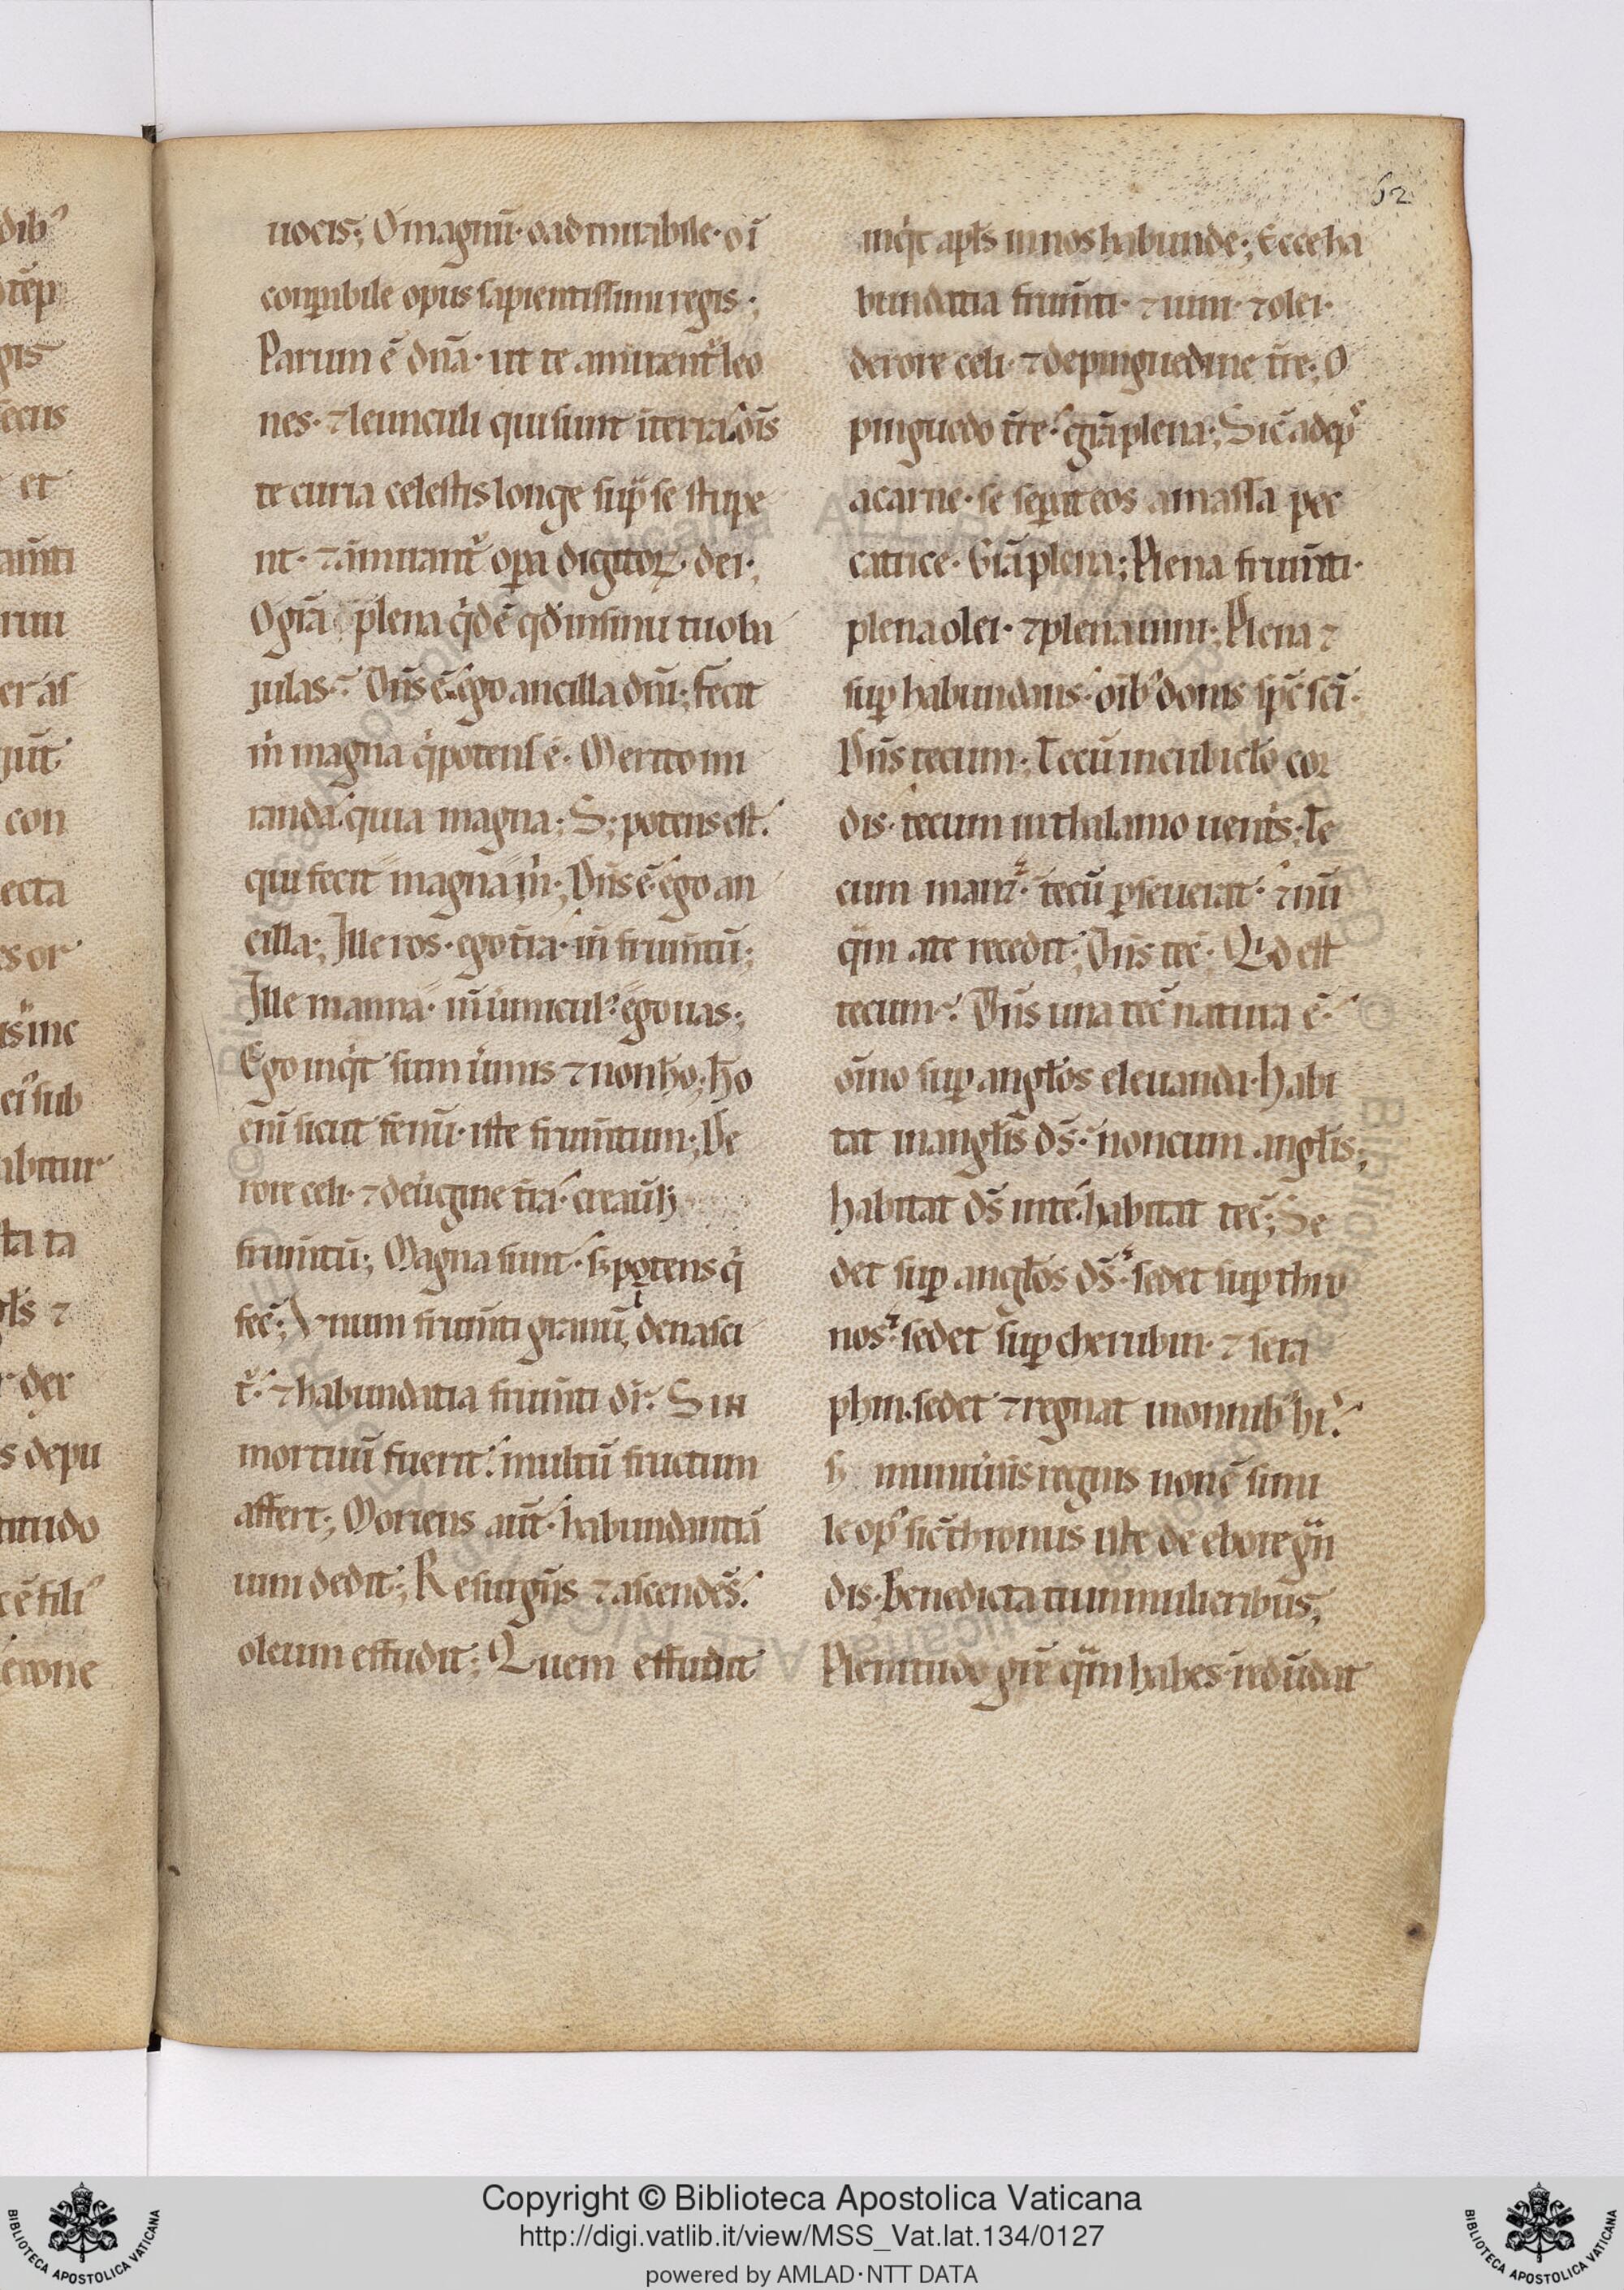 62
uocis; O magnũ· o admirabile· o ĩ
conꝑabile opus sapientissimi regis·;
Parum ẽ dñã· ut te amirent᷑ leo
nes· ⁊ leunculi qui sunt ĩ terra· oĩs
te curia celestis longe suꝑ se stupe
nt· ⁊ amirant᷑ oꝑa digitoꝝ dei·;
O grã plena qͥdẽ qđ in sinu tuo ba
iulas·? Dñs ẽ· ego ancilla dñi·; fecit
mͥ magna qͥ potens ẽ· Merito mi
randa· quia magna·; S; potens est·
qui fecit magna mͥ·; Dñs ẽ· ego an
cilla·; Ille ros· ego tr̃a· in frum̃tũ·;
Ille manna· ego uas·;
Ego inqͥt sum u᷑mis ⁊ non hõ·; hõ
enĩ sicut fenũ· iste frum̃tum·; De
rore celi· ⁊ de
frum̃tũ·; Magna sunt· sꝫ potens qͥ
fec̃·; Vnum frum̃ti granũ de nasci
t᷑·· ⁊ habundãtia frum̃ti dr̃· Sin
mortuũ fuerit· multũ fructum
affert·; Moriens aũt· habundantiã
uini dedit·; Resurgẽs ⁊ ascendẽs·
oleum effudit·; Quem effudit
inqͥt apl̃s in nos habunde·; Ecce ha
bundãtia frum̃ti· ⁊ uini· ⁊ olei·
de rore celi· ⁊ de pinguedine tr̃e·; O
pinguedo tr̃e· grã plena·; Sic̃ adeps
a carne· se seꝑat eos a massa pec
catrice· Grã plena·; Plena frum̃ti·
plena olei· ⁊ plena uini·; Plena ⁊
suꝑ habundans· oĩbꝰ donis sp̃c sc̃i·
Dñs tecum·; Tecũ in cubicl̃o cor
dis· tecum in thalamo uent̃s·; Te
cum manet· tecũ ꝑseuerat· ⁊ nũ
qͣm a te recedit·; Dñs tec̃·; Qͥd est
tecum·? Dñs una tec̃ natura ẽ·
oĩno suꝑ angl̃os eleuanda· habi
tat in angl̃is ds̃· non cum angl̃is·;
habitat ds̃ in te· habitat tec̃·; Se
det suꝑ angl̃os ds̃· sedet suꝑ thro
nos· sedet suꝑ cherubin· ⁊ sera
phin· sedet ⁊ regnat in omnibꝰ hiͥ·
sꝫ in uniũsis regnis non ẽ simi
le opꝰ sic̃ thronus iste de ebore gͣn
dis· Benedicta tu in mulieribus·;
Plenitudo gr̃e qͣm habes· redũdat
Copyright © Biblioteca Apostolica Vaticana
http://digi.vatlib.it/view/MSS_Vat.lat.134/0127
powered by AMLAD·NTT DATA
BIBLIOTECA APOSTOLICA VATICANA
BIBLIOTECA APOSTOLICA VATICANA